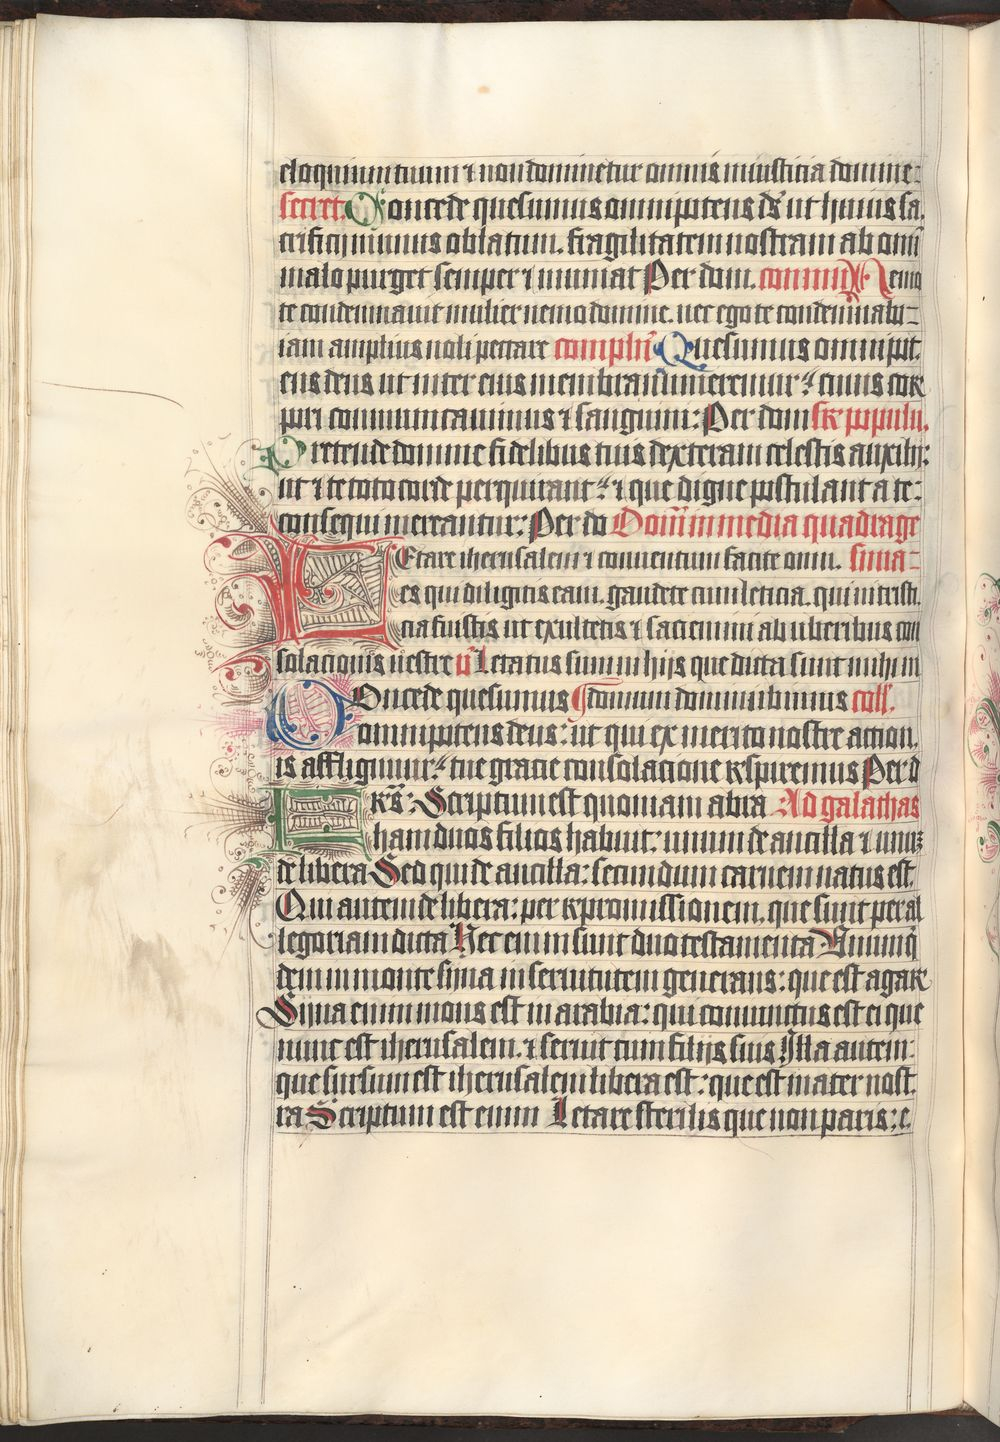 eloquium tuum ⁊ non dominetur omnis iniusticia domine:
secret. Concede quesumus omnipotens ds̄ ut huius sa,
crificij munus oblatum. fragilitatem nostram ab omī
malo purget semper ⁊ muniat Per dom. commūī Nemo
te condemnauit mulier nemo domine. nec ego te condemnabo
iam amplius noli peccare complīī Quesumus omnipot.
ens deus ut inter eius membra nūmeremur: cuius cor
pori communicauimus ⁊ sanguini: Per dom sr̄ populū.
Pretende domine fidelibus tuis dexteram celestis auxilij:
ut ⁊ te toto corde perquirant: ⁊ que digne postulant a te:
consequi mereantur: Per do Domīī in media quadrage
Letare iherusalem ⁊ conuentum facite omn. sima
es qui diligitis eam. gaudete cum leticia. qui in tristi.
cia fuistis ut exultetis ⁊ saciemini ab uberibus con
solacionis uestre v̄ Letatus sum in hijs que dicta sunt mihi in
Concede quesumus domum domini ibimus coll.
omnipotens deus: ut qui ex merito nostre action,
is affligimur: tue gracie consolacione respiremus Per d
Frēs: Scriptum est quoniam abra Ad galathas
ham duos filios habuit: unum de ancilla ⁊ unuꝫ
de libera Sed qui de ancilla: secundum carnem natus est.
Qui autem de libera: per repromissionem. que sunt per al
legoriam dicta Hec enim sunt duo testamenta Unum q̄
dem in monte syna in seruitutem generans: que est agar
Sijna enim mons est in arabia: qui coniunctus est ei que
nunc est iherusalem. ⁊ seruit cum filijs suis Illa autem:
que sursum est iherusalem libera est: que est mater nost.
ra Scriptum est enim Letare sterilis que non paris: e